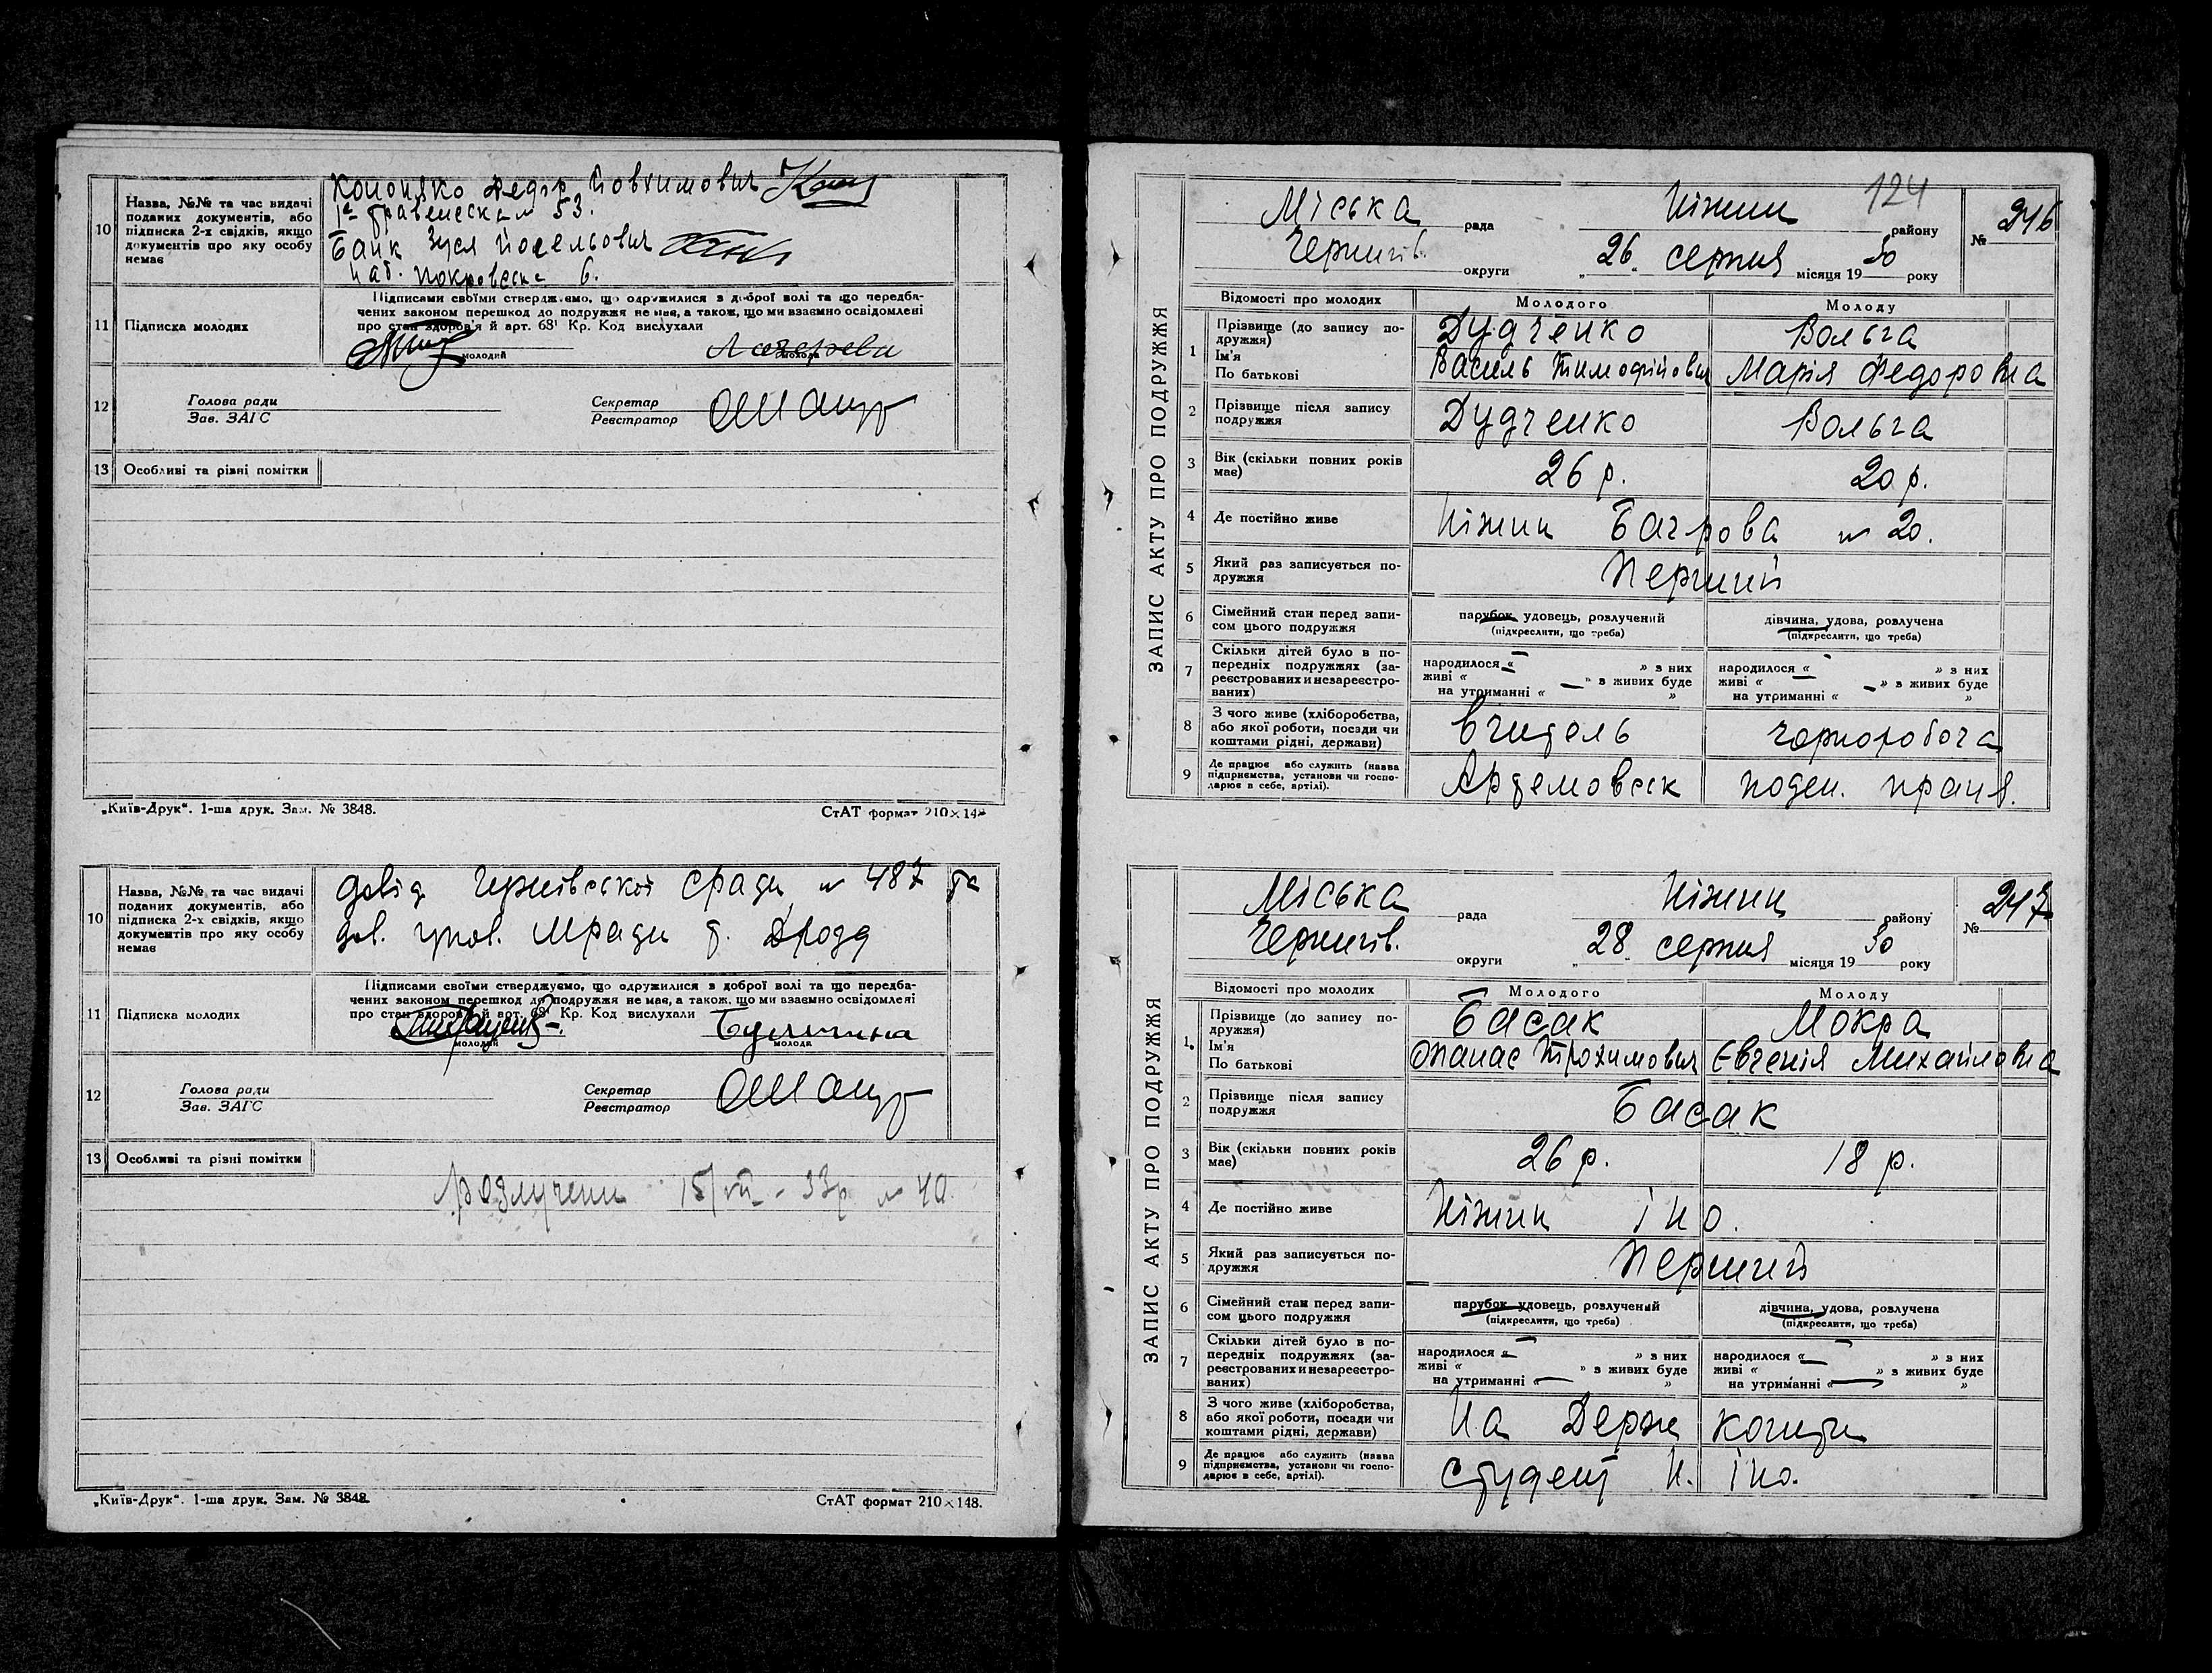 10
Назва, №№ та час видачі
поданих документів, або
підписка 2-х свідків, якщо
документів про яку особу
немає
Кононяко Федір Йовхимович
53.
Банк Зуся Йосельович
наб. Покровська 6.
11
Підписка молодих
Підписами своїми стверджуємо, що одружилися з доброї волі та що передба-
чених законом перешкод до подружжя не має, а також, що ми взаємно освідомлені
про стан здоров'я й арт. 68¹ Кр. Код вислухали
молодий
молода
12
Голова ради
Зав. ЗАГС
Секретар
Реєстратор
13
Особливі та різні помітки
„Київ-Друк“. 1-ша друк. Зам. № 3848.
СтАТ формат 210×148
10
Назва, №№ та час видачі
поданих документів, або
підписка 2-х свідків, якщо
документів про яку особу
немає
довід Чернігівської сради № 487 та
дов. упов. Мради т. Дрозд
11
Підписка молодих
Підписами своїми стверджуємо, що одружилися з доброї волі та що передба-
чених законом перешкод до подружжя не має, а також, що ми взаємно освідомлені
про стан здоров'я й арт. 68¹ Кр. Код вислухали
молодий
молода
12
Голова ради
Зав. ЗАГС
Секретар
Реєстратор
13
Особливі та різні помітки
розлучени 15/VII - 33р № 40
„Київ-Друк“. 1-ша друк. Зам. № 3848.
СтАТ формат 210×148.
124
ЗАПИС АКТУ ПРО ПОДРУЖЖЯ
Міська рада Ніжин району
№ 246
Чернігів. округи „26„ серпня місяця 1930 року
Відомості про молодих
Молодого
Молоду
1
Прізвище (до запису по-
дружжя)
Ім'я
По батькові
Дудченко
Василь Тимофійович
Вольга
Марія Федоровна
2
Прізвище після запису
подружжя
Дудченко
Вольга
3
Вік (скільки повних років
має)
26 р.
20 р.
4
Де постійно живе
Ніжин Багрова № 20.
5
Який раз записується по-
дружжя
Перший
6
Сімейний стан перед запи-
сом цього подружжя
парубок, удовець, розлучений
(підкреслити, що треба)
дівчина, удова, розлучена
(підкреслити, що треба)
7
Скільки дітей було в по-
передніх подружжях (за-
реєстрованих и незареєстро-
ваних)
народилося « — » з них
живі « — » з живих буде
на утриманні « — »
народилося « — » з них
живі « — » з живих буде
на утриманні « — »
8
З чого живе (хліборобства,
або якої роботи, посади чи
коштами рідні, держави)
вчитель
чорноробоча
9
Де працює або служить (назва
підприємства, установи чи госпо-
дарює в себе, артілі).
Артемовськ
поден. праця.
ЗАПИС АКТУ ПРО ПОДРУЖЖЯ
Міська рада Ніжин району
№ 247
Чернігів. округи „28„ серпня місяця 1930 року
Відомості про молодих
Молодого
Молоду
1.
Прізвище (до запису по-
дружжя)
Ім'я
По батькові
Басак
Опанас Трохимович
Мокра
Євгенія Михайловна
2
Прізвище після запису
подружжя
Басак
3
Вік (скільки повних років
має)
26 р.
18 р.
4
Де постійно живе
Ніжин ІНО.
5
Який раз записується по-
дружжя
Перший
6
Сімейний стан перед запи-
сом цього подружжя
парубок, удовець, розлучений
(підкреслити, що треба)
дівчина, удова, розлучена
(підкреслити, що треба)
7
Скільки дітей було в по-
передніх подружжях (за-
реєстрованих и незареєстро-
ваних)
народилося « — » з них
живі « » з живих буде
на утриманні « — »
народилося « — » з них
живі « » з живих буде
на утриманні « — »
8
З чого живе (хліборобства,
або якої роботи, посади чи
коштами рідні, держави)
На Держ кошти
9
Де працює або служить (назва
підприємства, установи чи госпо-
дарює в себе, артілі).
студент Н. ІНО.